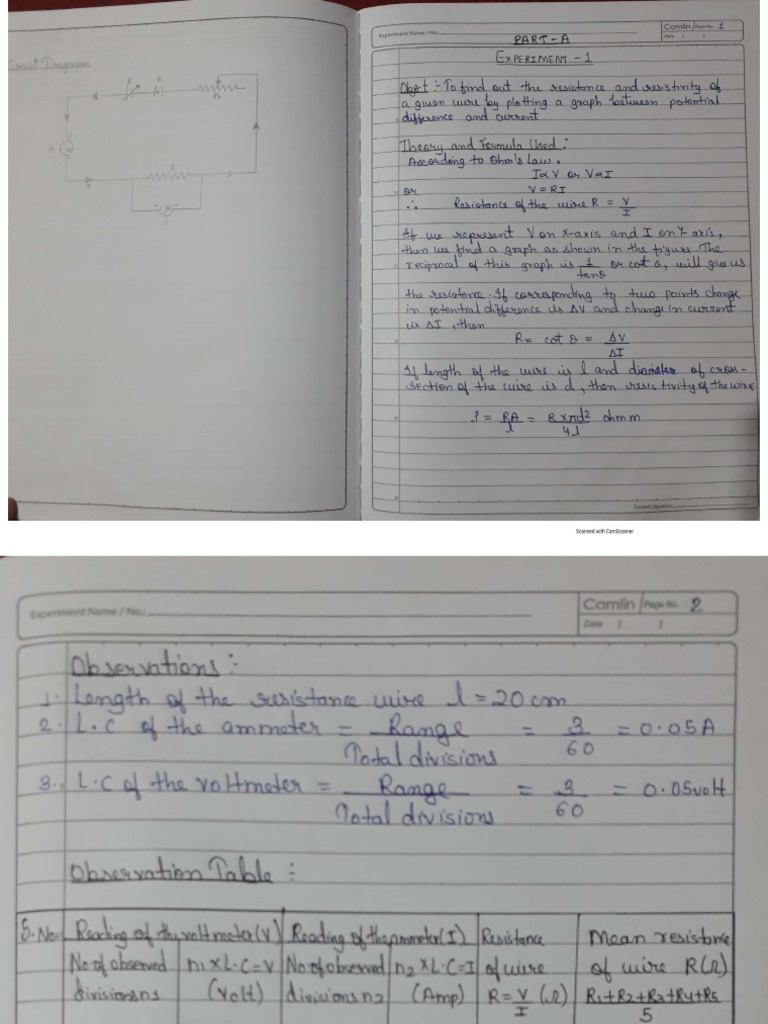 Circuit Diagram
E
K
Rh
A
R
V
Experiment Name / No.:
Camlin Page No. 1
Date / /
PART-A
EXPERIMENT-1
Object :- To find out the resistance and resistivity of
a given wire by plotting a graph between potential
difference and current
Theory and Formula Used:
According to Ohm's Law.
I∝V or V∝I
or V = RI
∴ Resistance of the wire R = V/I
If we represent V on X-axis and I on Y-axis,
then we find a graph as shown in the figure. The
reciprocal of this graph is 1/tanθ or cot θ, will give us
the resistance. If corresponding to two points change
in potential difference is ΔV and change in current
is ΔI, then
R = cot θ = ΔV/ΔI
If length of the wire is l and diameter of cross-
section of the wire is d, then resistivity of the wire
ρ = RA/l = R×πd²/4l ohm m
Teacher's Signature
Scanned with CamScanner
Experiment Name / No.:
Camlin Page No. 2
Date / /
Observations :
1. Length of the resistance wire l = 20 cm
2. L.C of the ammeter = Range/Total divisions = 3/60 = 0.05A
3. L.C of the voltmeter = Range/Total divisions = 3/60 = 0.05 volt
Observation Table :
S.No. Reading of the voltmeter(V) Reading of the ammeter(I) Resistance Mean resistance
No of observed n1 x L.C = V No of observed n2 x L.C = I of wire of wire R(Ω)
divisions n1 (Volt) divisions n2 (Amp) R = V/I (Ω) R1+R2+R3+R4+R5/5